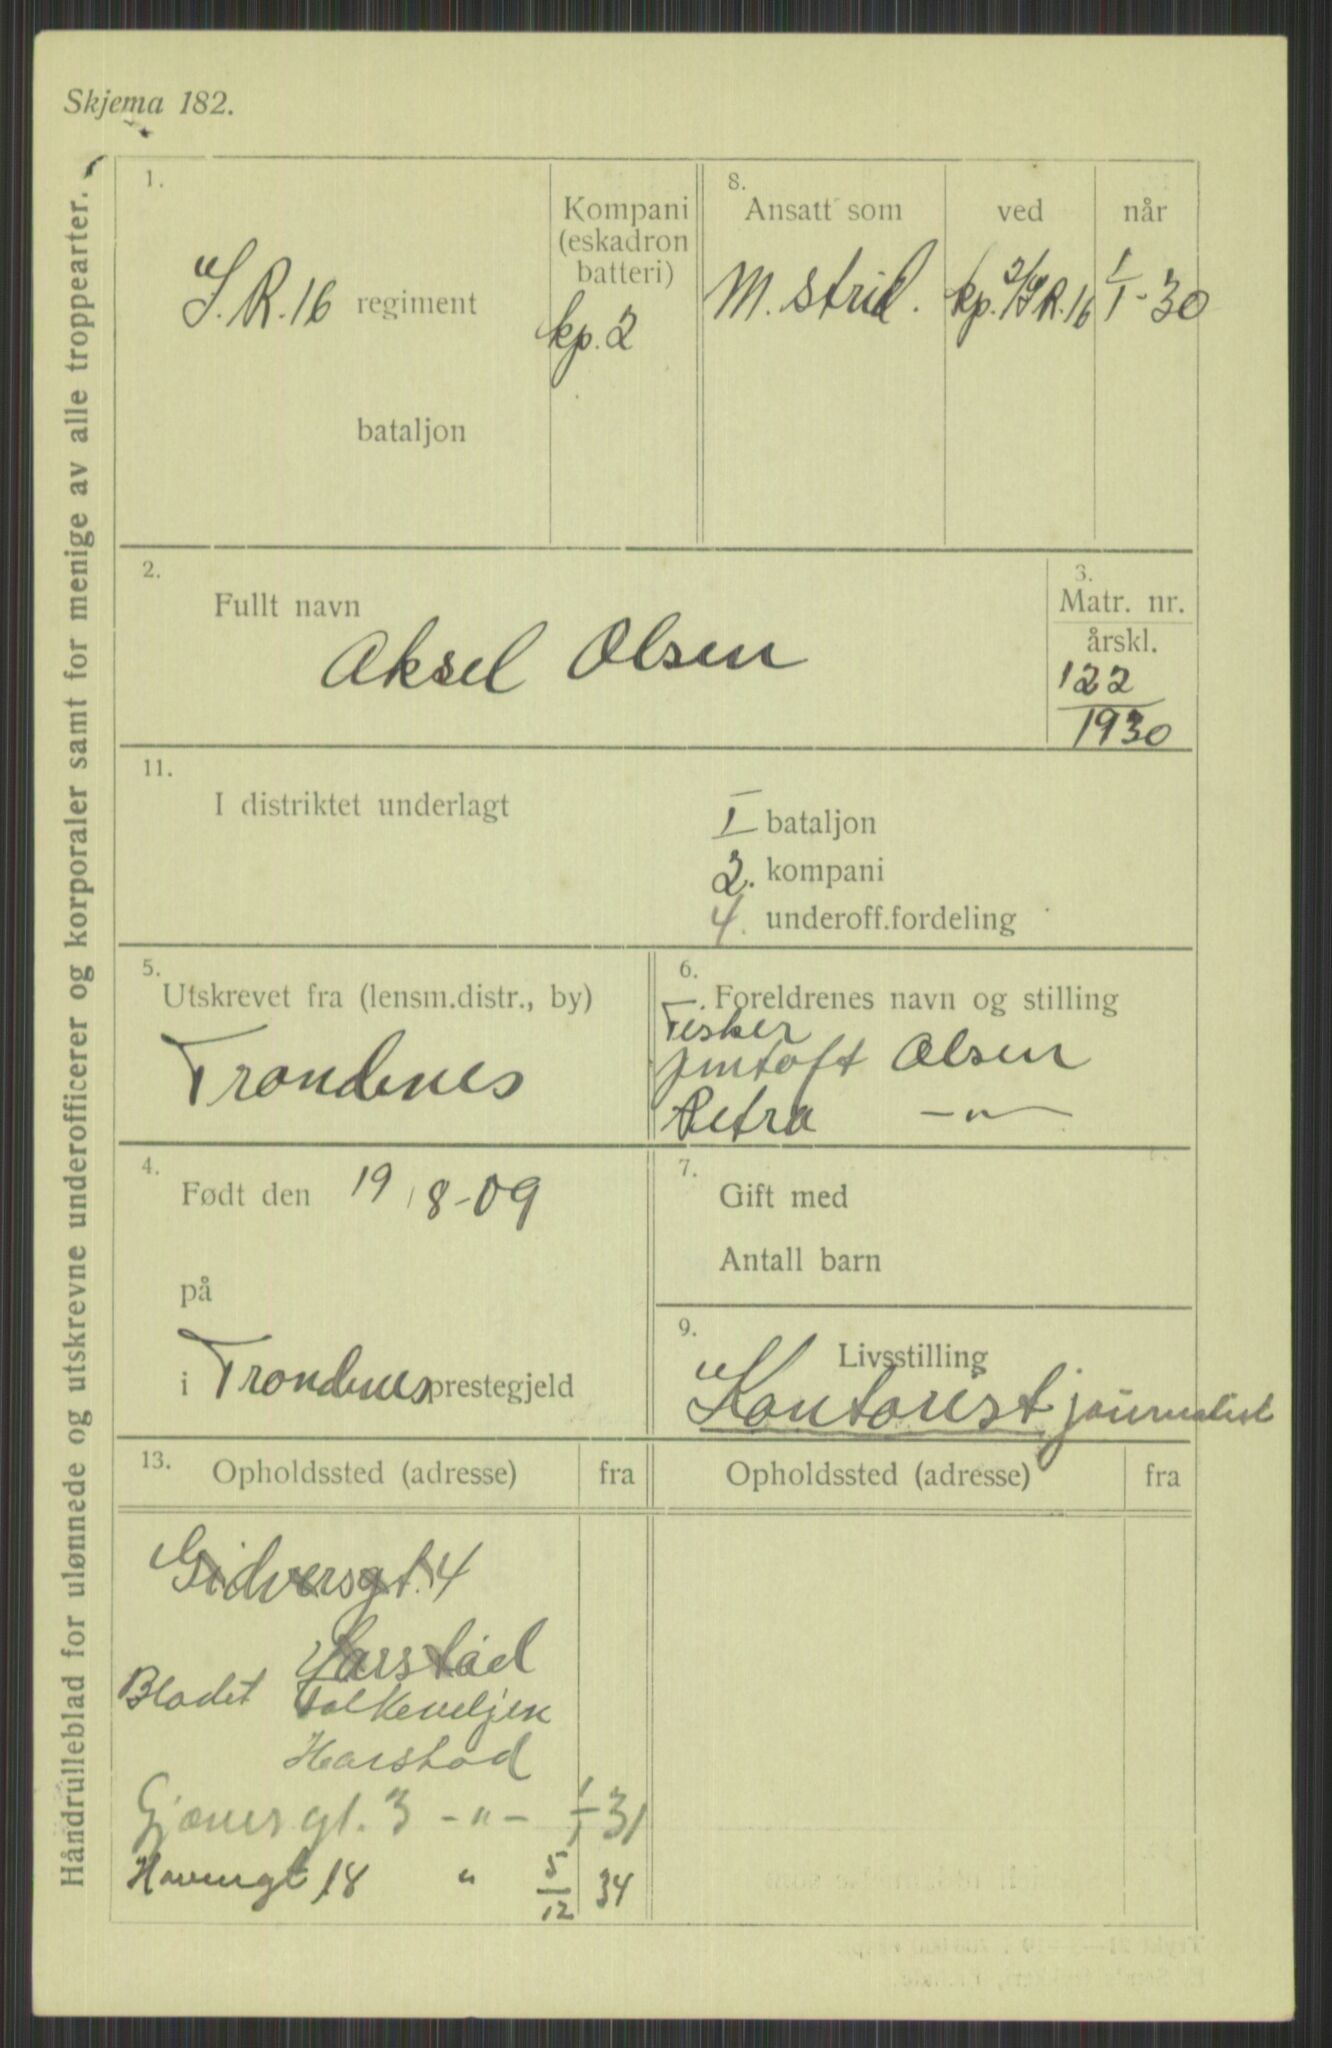 Skjema 182.
Håndrulleblad for ulønnede og utskrevne underofficerer og korporaler samt for menige av alle troppearter.
1.
I.R.16 regiment
bataljon
Kompani
(eskadron
batteri)
kp. 2
8.
Ansatt som
ved
når
M. strid.
kp. 2/I.R.16
1/1-30
2.
Fullt navn
Aksel Olsen
3.
Matr. nr.
årskl.
122
1930
11.
I distriktet underlagt
I bataljon
2. kompani
4. underoff.fordeling
5.
Utskrevet fra (lensm.distr., by)
Trondenes
6.
Foreldrenes navn og stilling
Fisker
Jentoft Olsen
Petra -"-
4.
Født den 19/8-09
på
i Trondenes prestegjeld
7.
Gift med
Antall barn
9.
Livsstilling
Kontorist journalist
13.
Opholdssted (adresse)
fra
Opholdssted (adresse)
fra
Harstad
Bladet Folkeviljen
Harstad
gt. 3 -"- 1/1 31
Havnegt 18 " 5/12 34